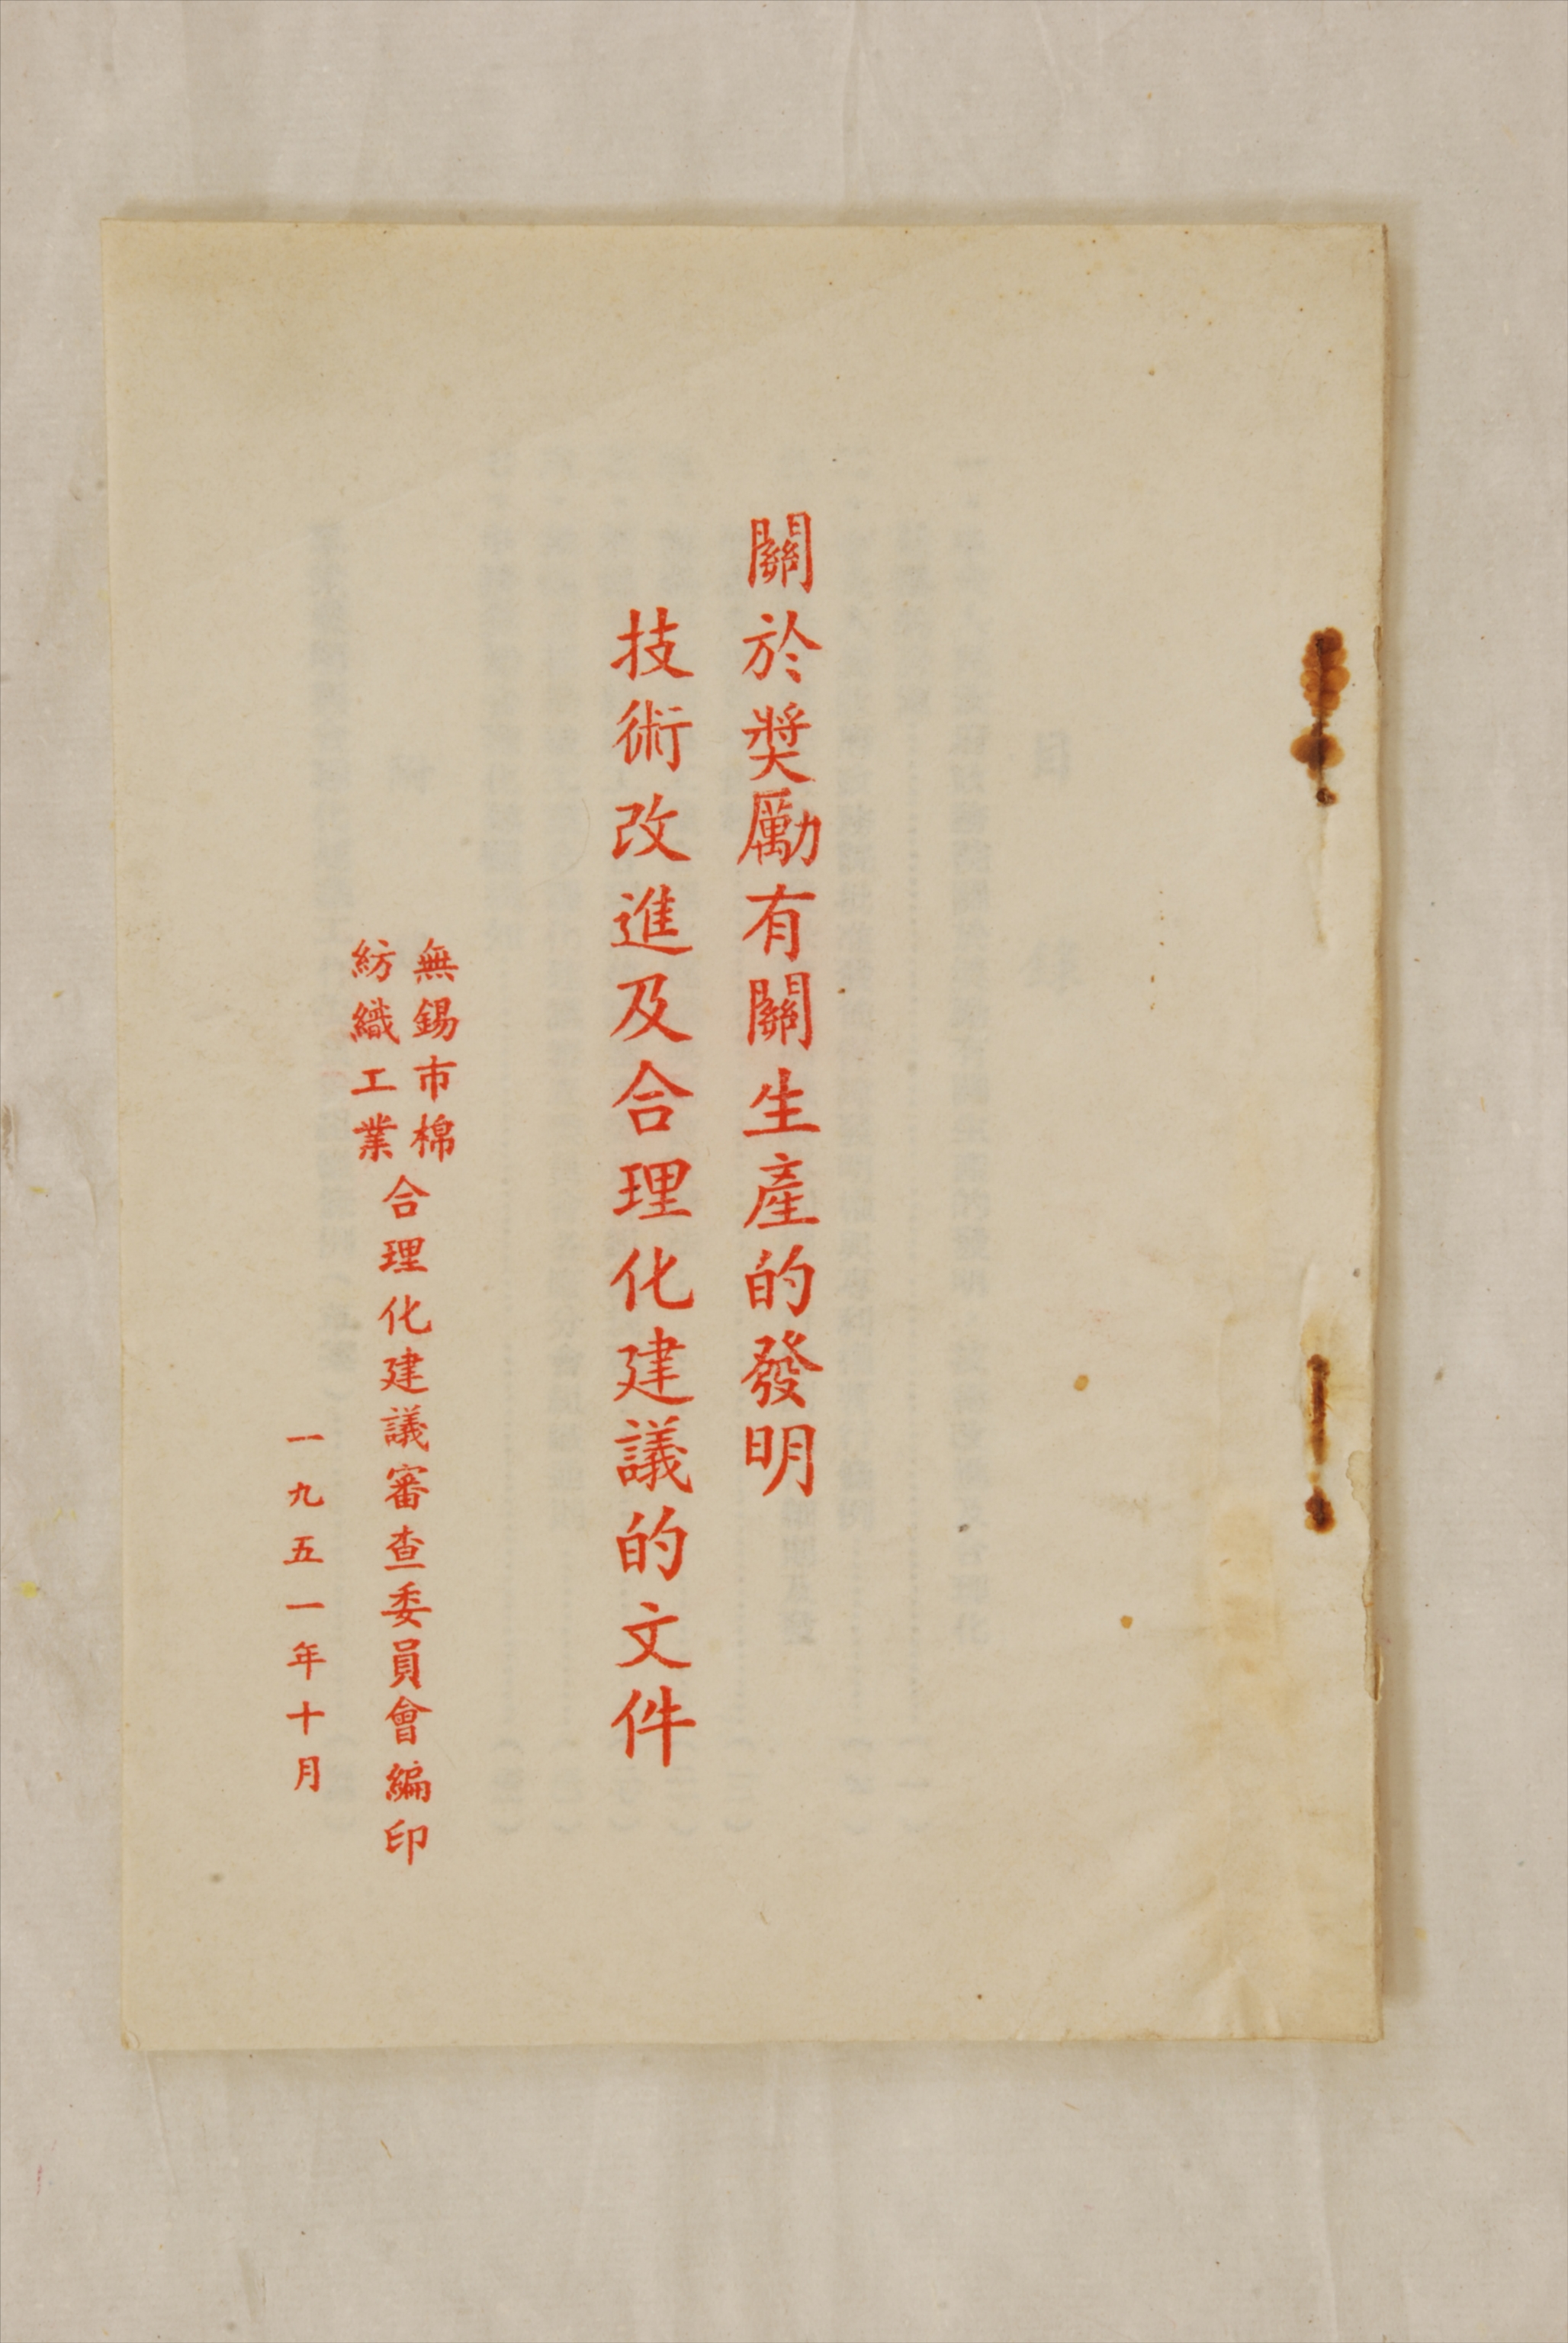 關於獎勵有關生產的發明
技術改進及合理化建議的文件
無錫市棉
紡織工業
合理化建議審查委員會編印
一九五一年十月